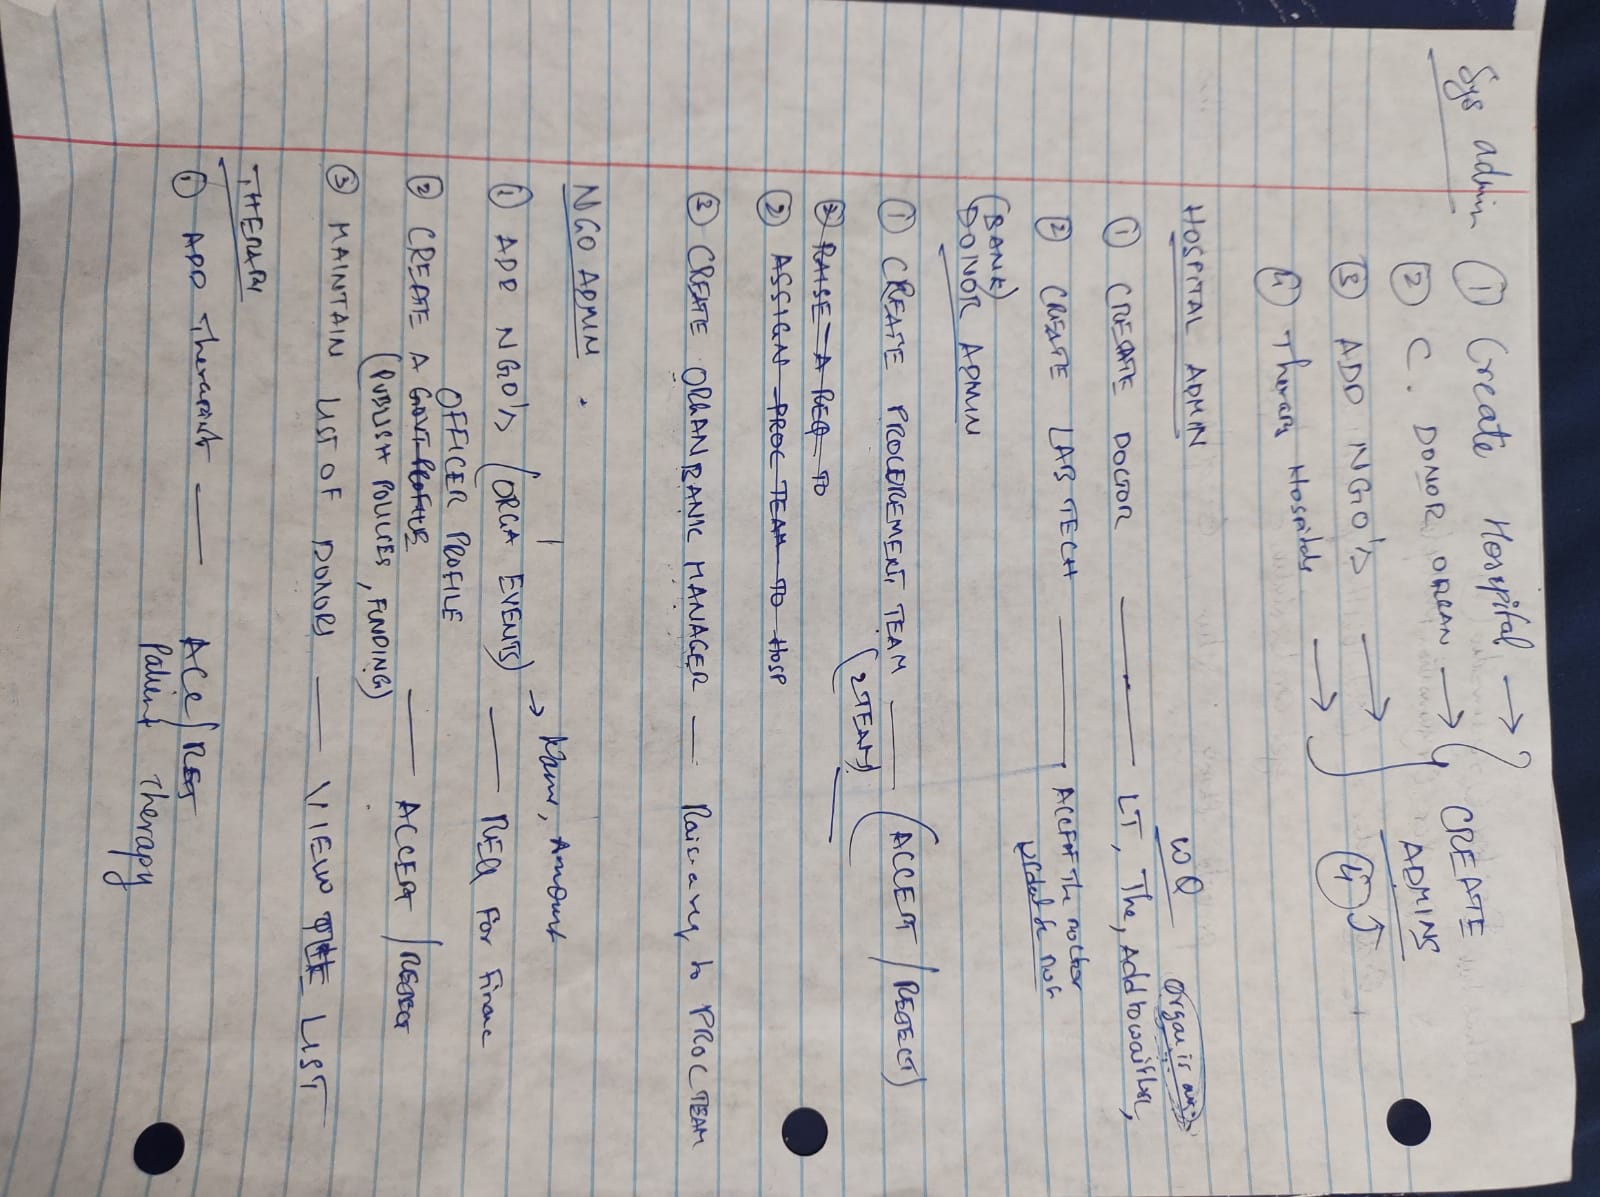 Sys admin ① Create Hospital →
② C. DONOR ORGAN → CREATE
③ ADD NGO's → ADMINS
④ Therapy Hospitals → ④
HOSPITAL ADMIN WQ
① CREATE DOCTOR — LT, The, Add to waitlist,
② CREATE LAB TECH — ACCEPT The
update
(BANK)
DONOR ADMIN
① CREATE PROCUREMENT TEAM — (ACCEPT / REJECT)
(2 TEAM)
③ RAISE A REQ TO
② ASSIGN PROC TEAM TO HOSP
③ CREATE ORGAN BANK MANAGER — Raise a req to PROC TEAM
NGO ADMIN.
→ Name, Amount
① ADD NGO's (ORGA EVENTS) — REQ For Finance
OFFICER PROFILE
② CREATE A GOVT PROFILE — ACCEPT / REJECT
(PUBLISH POLICIES, FUNDING)
③ MAINTAIN LIST OF DONORS — VIEW THE LIST
THERAPY
① ADD Therapist — ACC/REJ
Patient Therapy